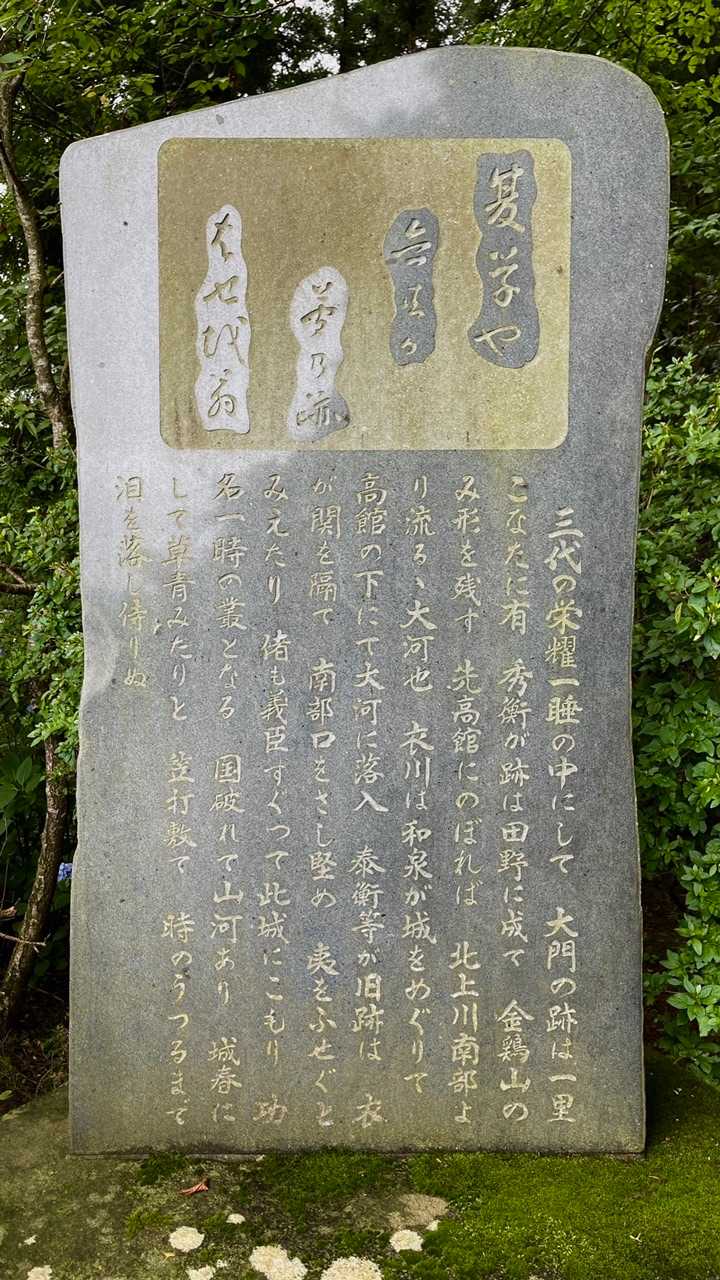 夏草や
兵共か
夢乃跡
はせを翁
三代の栄耀一睡の中にして　大門の跡は一里
こなたに有　秀衡が跡は田野に成て　金鶏山の
み形を残す　先高館にのぼれば　北上川南部よ
り流るゝ大河也　衣川は和泉が城をめぐりて
高館の下にて大河に落入　泰衡等が旧跡は　衣
が関を隔て　南部口をさし堅め　夷をふせぐと
みえたり　偖も義臣すぐつて此城にこもり　功
名一時の叢となる　国破れて山河あり　城春に
して草青みたりと　笠打敷て　時のうつるまで
泪を落し侍りぬ